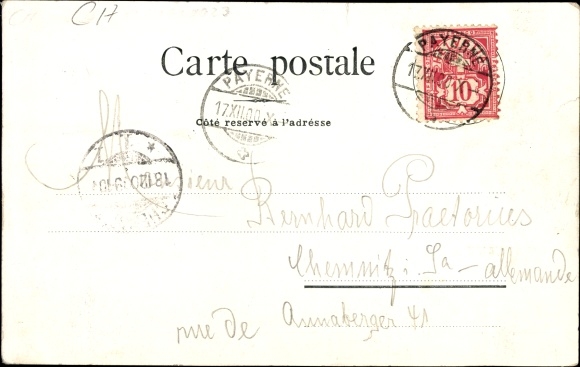 CH
Carte postale
PAYERNE
10
PAYERNE
17.XII.0
Côté reservé à l'adresse
Monsieur
Bernhard Praetorius
Chemnitz i. Sa - allemande
rue de Annaberger 41